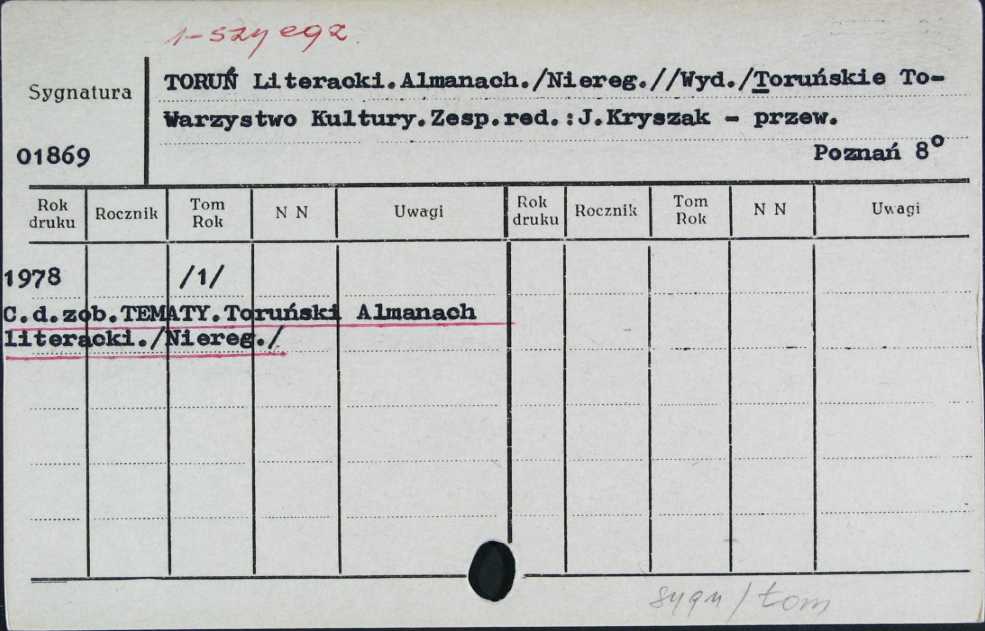 1-szy egz
Sygnatura
TORUŃ Literacki.Almanach./Niereg.//Wyd./Toruńskie To-
Warzystwo Kultury.Zesp.red.:J.Kryszak - przew.
01869
Poznań 8°
Rok druku Rocznik Tom Rok N N Uwagi Rok druku Rocznik Tom Rok N N Uwagi
1978 /1/
C.d.zob.TEMATY.Toruński Almanach
literacki./Niereg./
sygn / tom